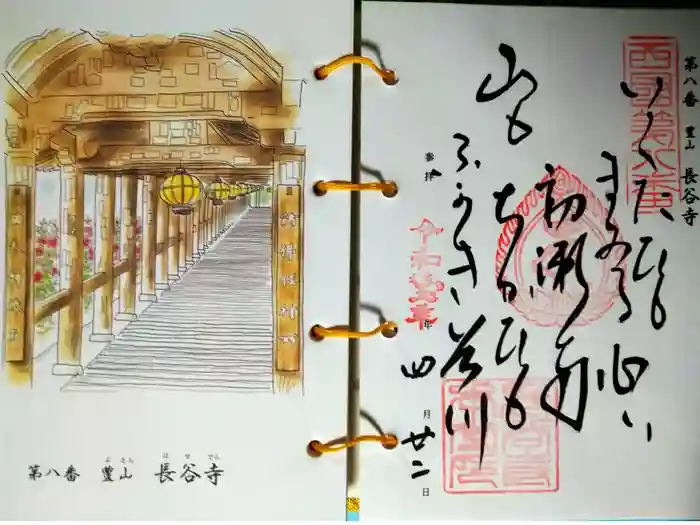 第八番 豊山 長谷寺
西國第八番
いくたひも
まゐる心ハ
初瀬寺
山も
ちかひも
ふかき谷川
参拝
令和
年
四月廿二日
ぶさん はせでら
第八番 豊山 長谷寺